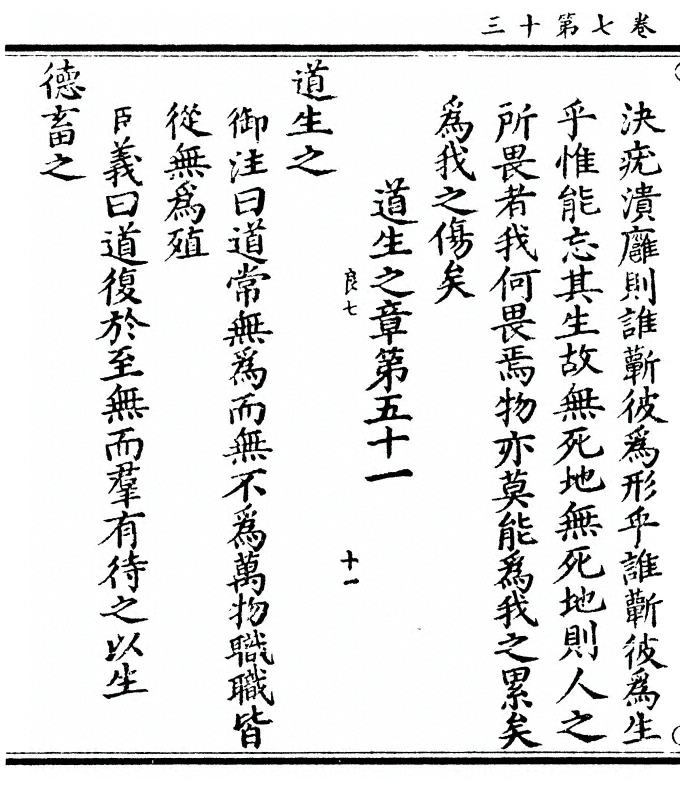 三十第七卷
決疣潰癰則誰蘄彼爲形乎誰蘄彼爲生
乎惟能忘其生故無死地無死地則人之
所畏者我何畏焉物亦莫能爲我之累矣
爲我之傷矣
道生之章第五十一
良七
十一
道生之
御注曰道常無爲而無不爲萬物職職皆
從無爲殖
臣義曰道復於至無而羣有待之以生
德畜之